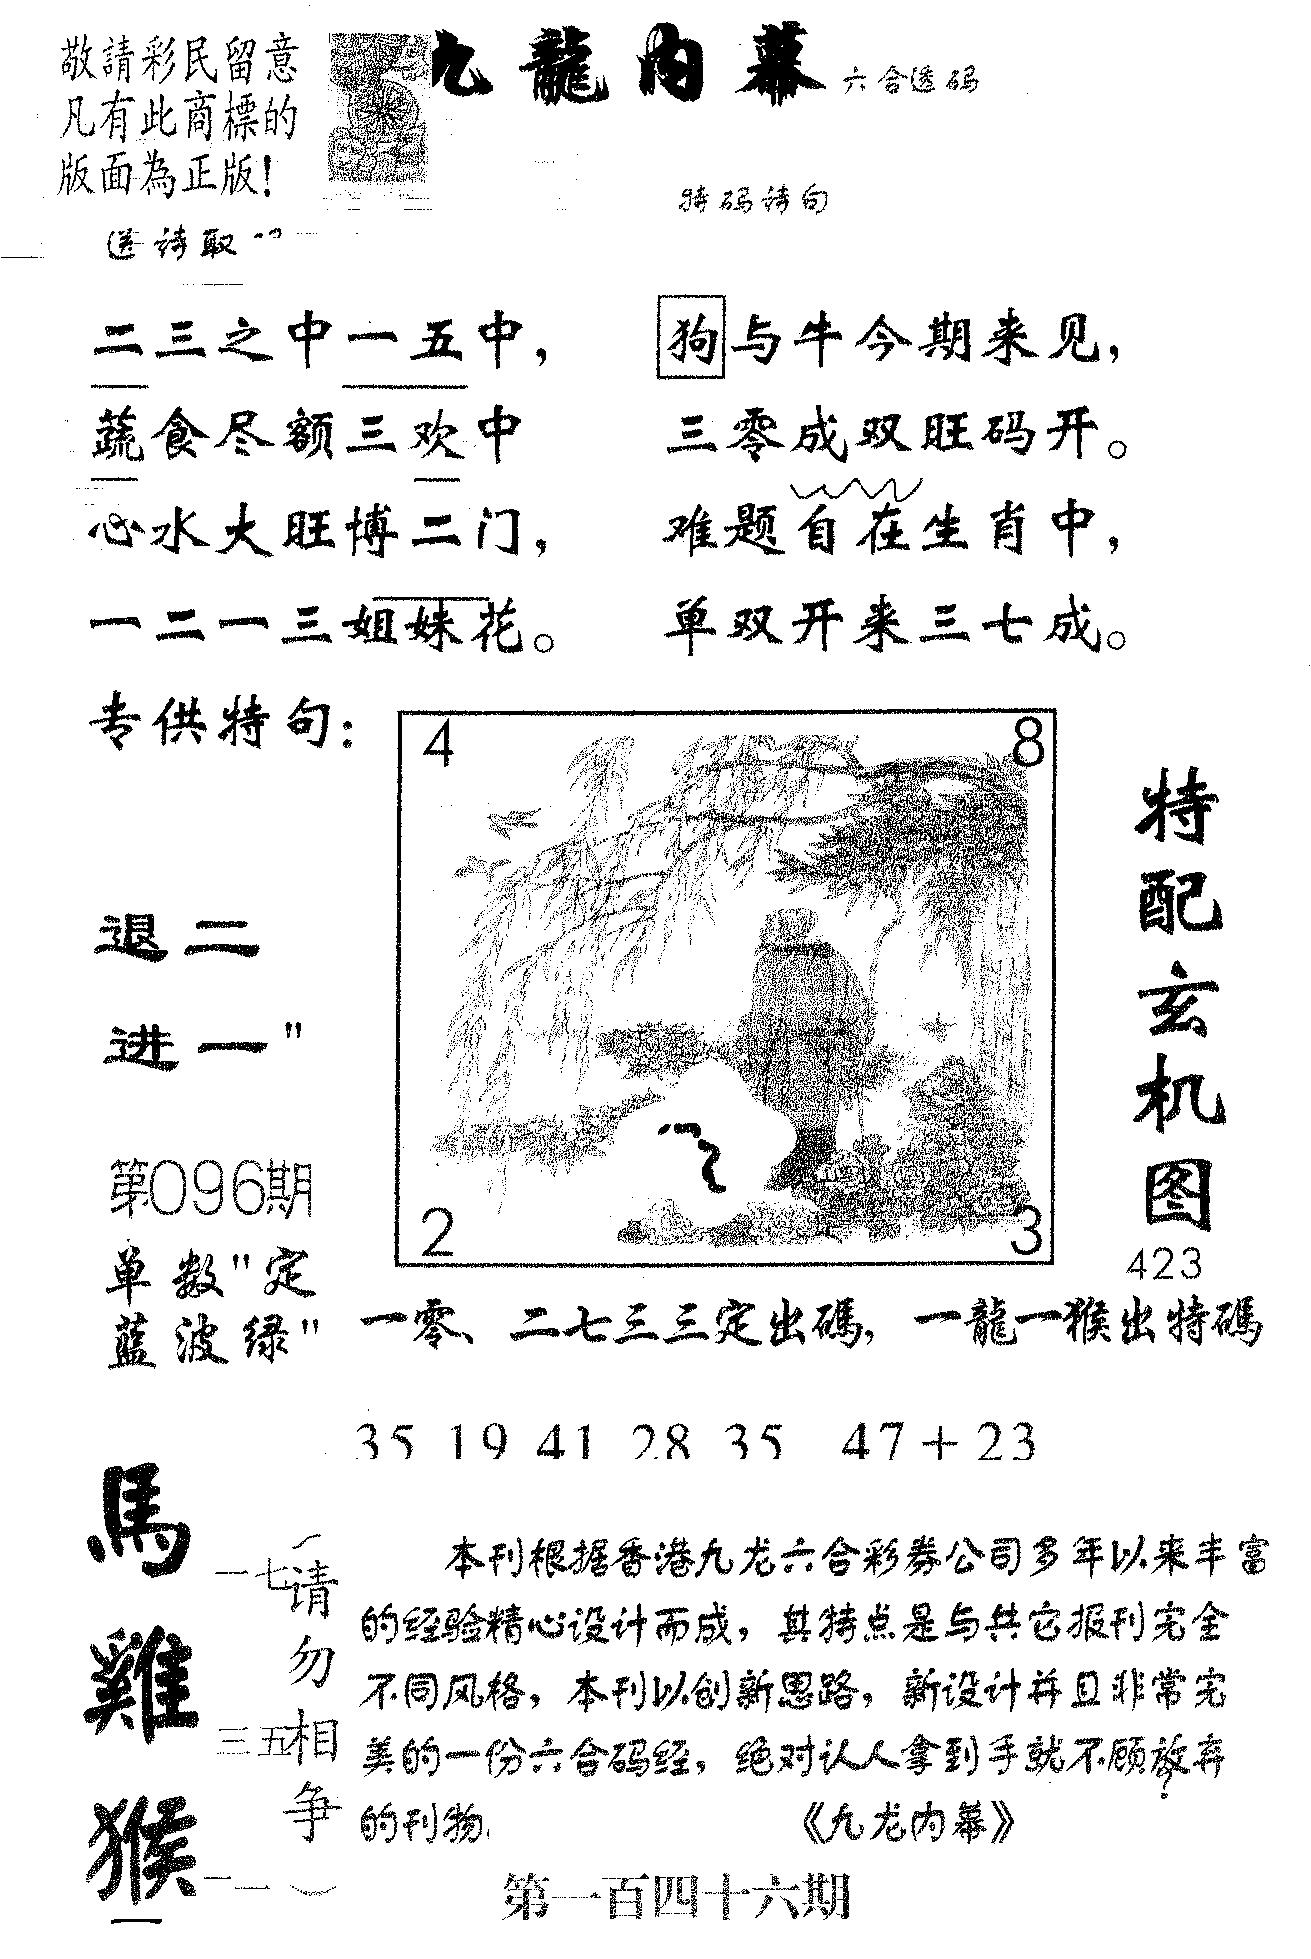 敬請彩民留意
凡有此商標的
版面為正版!
九龍内幕 六合透码
特码诗句
送诗取
二三之中一五中，
蔬食尽额三欢中
心水大旺博二门，
一二一三姐妹花。
狗与牛今期来见，
三零成双旺码开。
难题自在生肖中，
单双开来三七成。
专供特句：
退二
进一"
第096期
单数"定
蓝波绿"
4
8
2
3
特配玄机图
423
一零、二七三三定出碼，一龍一猴出特碼
35 19 41 28 35 47+23
馬 一七
雞 三五
猴 一一
（请勿相争）
本刊根据香港九龙六合彩券公司多年以来丰富
的经验精心设计而成，其特点是与其它报刊完全
不同风格，本刊以创新思路，新设计并且非常完
美的一份六合码经，绝对认人拿到手就不顾放弃
的刊物.
《九龙内幕》
第一百四十六期